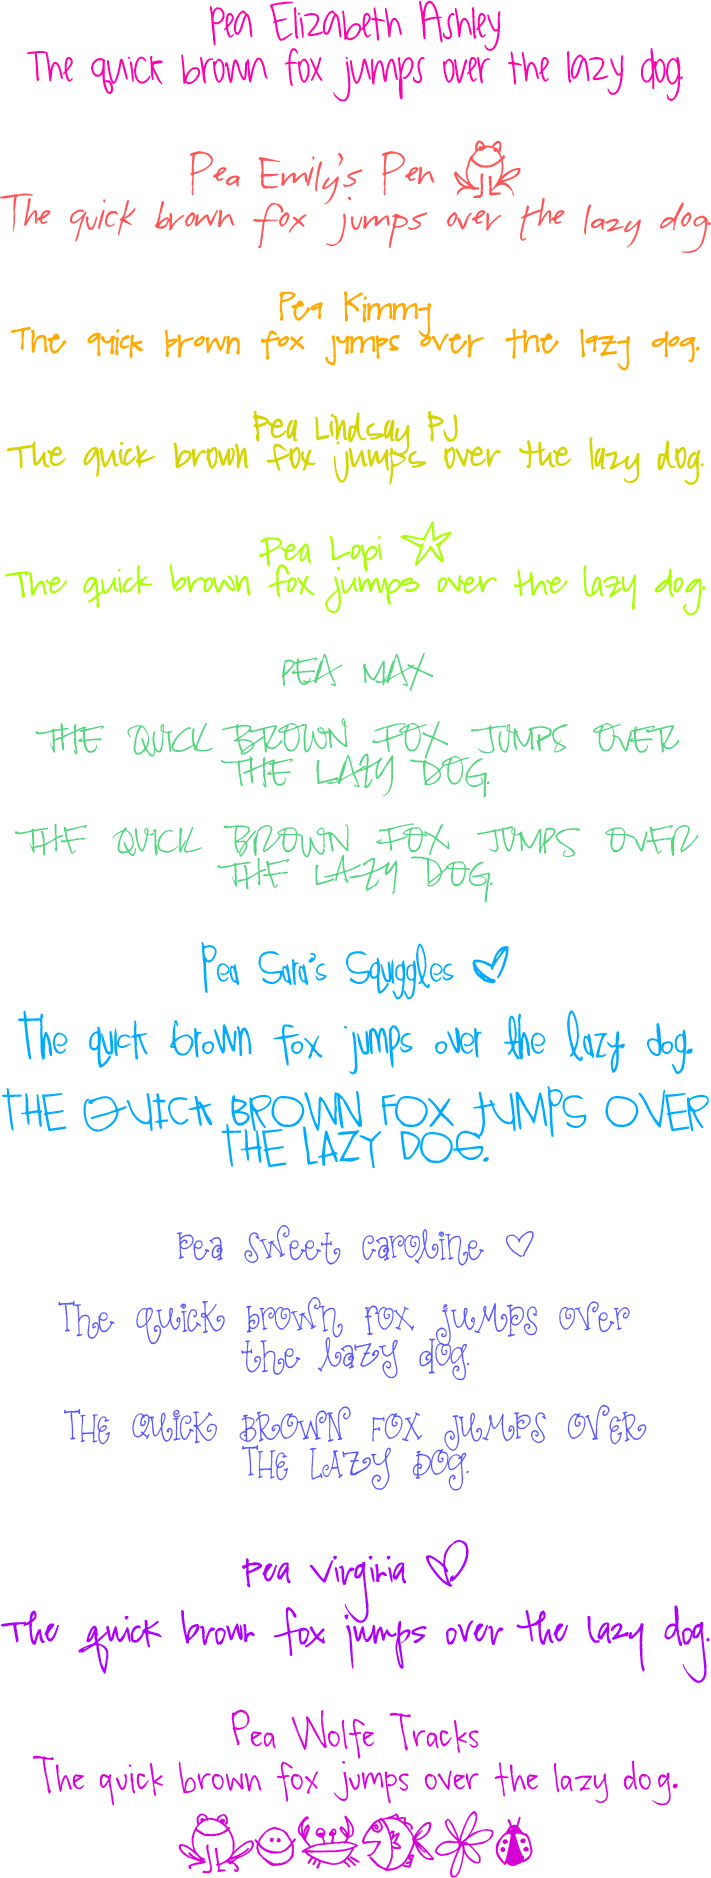 Pea Elizabeth Ashley
The quick brown fox jumps over the lazy dog
Pea Emily's Pen
The quick brown fox jumps over the lazy dog.
Pea Kimmy
The quick brown fox jumps over the lazy dog.
Pea Lindsay PJ
The quick brown fox jumps over the lazy dog.
Pea Lopi
The quick brown fox jumps over the lazy dog.
PEA MAX
THE QUICK BROWN FOX JUMPS OVER
THE LAZY DOG.
THE QUICK BROWN FOX JUMPS OVER
THE LAZY DOG.
Pea Sara's Squiggles
The quick brown fox jumps over the lazy dog.
THE QUICK BROWN FOX JUMPS OVER
THE LAZY DOG.
Pea Sweet Caroline
The quick brown fox jumps over
the lazy dog.
THE QUICK BROWN FOX JUMPS OVER
THE LAZY DOG.
Pea Virginia
The quick brown fox jumps over the lazy dog.
Pea Wolfe Tracks
The quick brown fox jumps over the lazy dog.